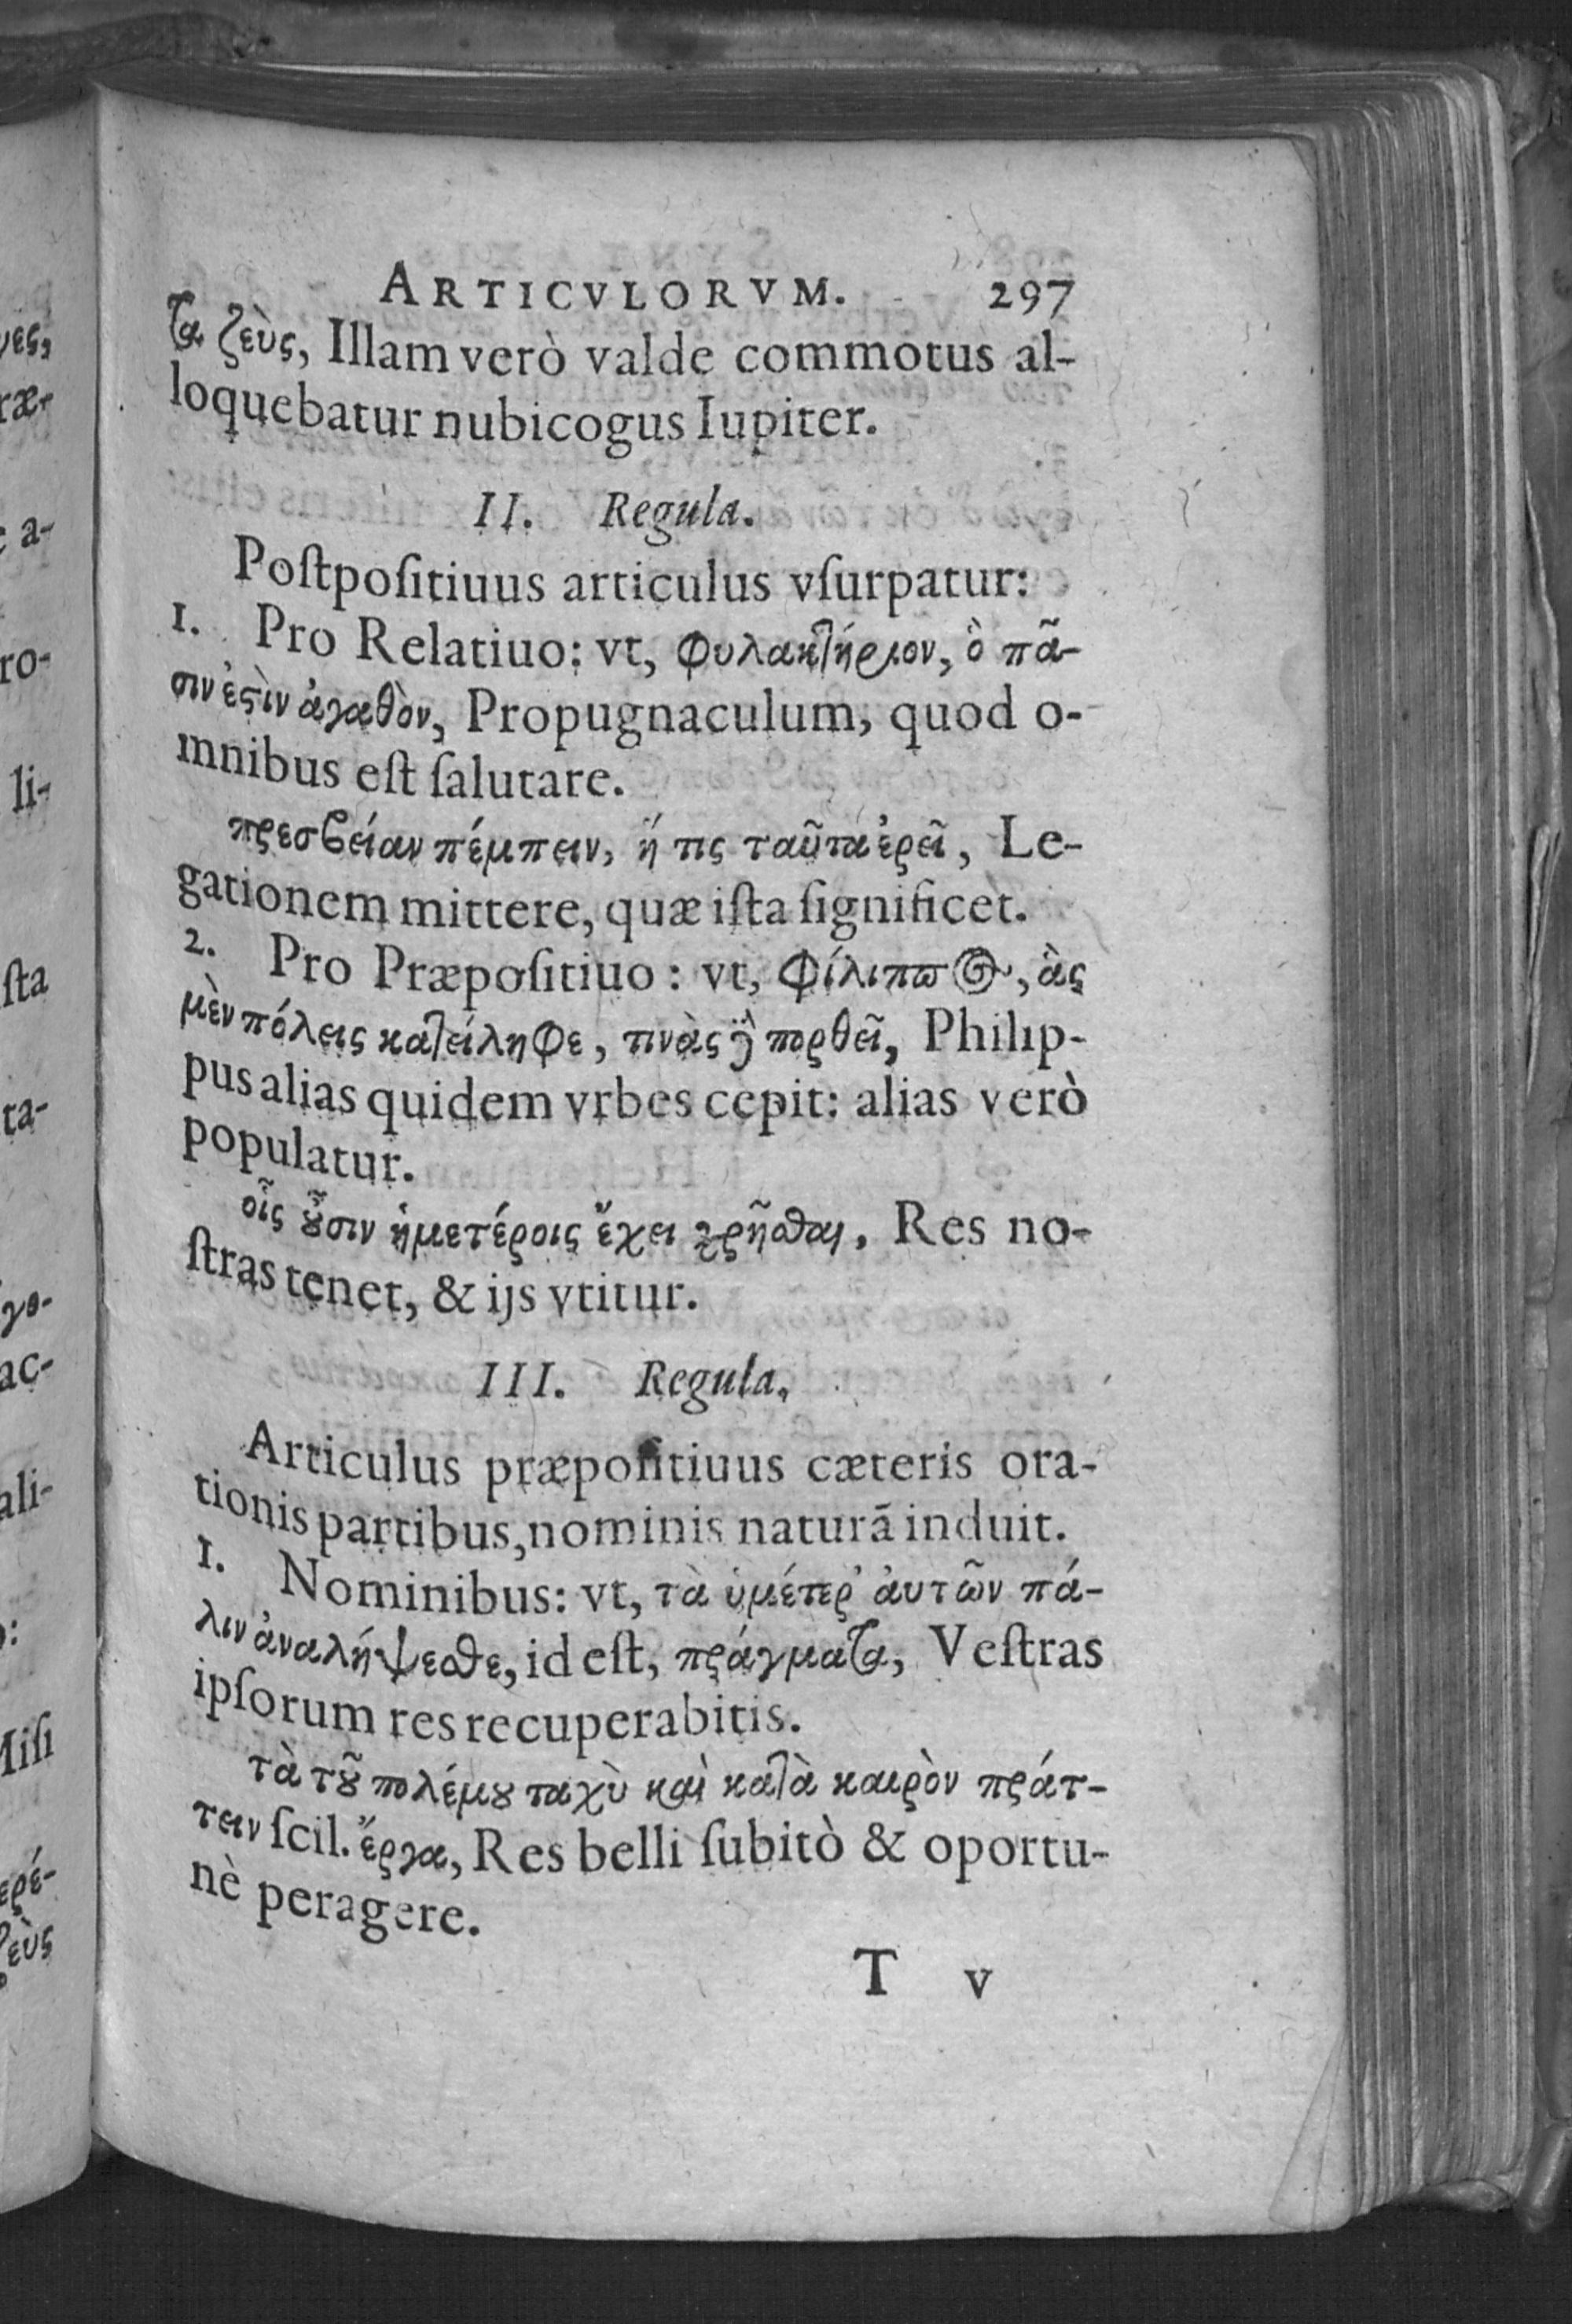 ARTICVLORVM. 297
τα ζεὺς, Illam verò valde commotus al-
loquebatur nubicogus Iupiter.
II. Regula.
Poſtpoſitiuus articulus vſurpatur:
1. Pro Relatiuo: vt, φυλακτήριον, ὃ πᾶ-
σιν ἐςὶν ἀγαθὸν, Propugnaculum, quod o-
mnibus eſt ſalutare.
πρεσϐείαν πέμπειν, ἥ τις ταῦτα ἐρεῖ, Le-
gationem mittere, quæ iſta ſignificet.
2. Pro Præpoſitiuo: vt, Φίλιππος, ἃς
μὲν πόλεις κατείληφε, τινὰς δὲ πορθεῖ, Philip-
pus alias quidem vrbes cepit: alias verò
populatur.
οἷς ȣ̓͂σιν ἡμετέροις ἔχει χρῆσθαι, Res no-
ſtras tenet, & ijs vtitur.
III. Regula.
Articulus præpoſitiuus cæteris ora-
tionis partibus, nominis naturā induit.
1. Nominibus: vt, τὰ ὑμέτερ' ἀυτῶν πά-
λιν ἀναλήψεσθε, id eſt, πράγματα, Veſtras
ipſorum res recuperabitis.
τὰ τȣ͂ πολέμȣ ταχὺ καὶ κατὰ καιρὸν πράτ-
τειν ſcil. ἔργα, Res belli ſubitò & oportu-
nè peragere.
T v